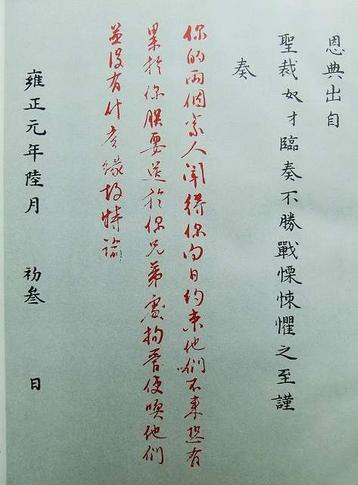 恩典出自
聖裁奴才臨奏不勝戰慄悚懼之至謹
奏
你的兩個家人聞得你向日約束他們不來恐有
累於你朕要送於你兄弟處拘管使喚他們
並沒有什麼緣故特諭
雍正元年陸月 初叁 日